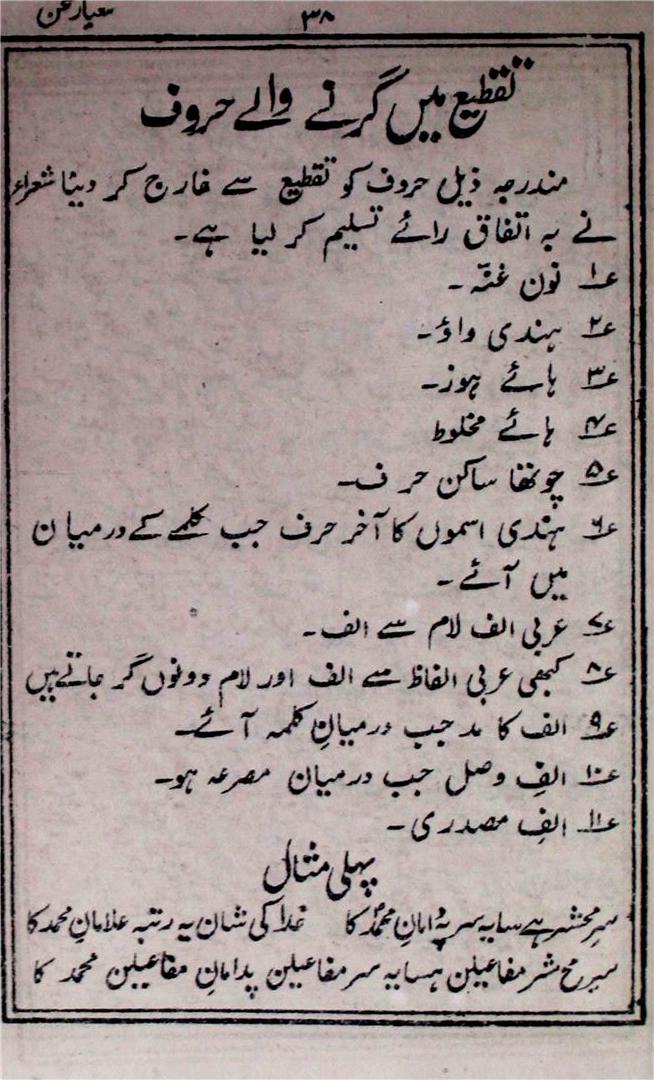 معیار سخن
۳۸
تقطیع میں گرنے والے حروف
مندرجہ ذیل حروف کو تقطیع سے خارج کر دینا شعراء
نے بہ اتفاق رائے تسلیم کر لیا ہے۔
۱؎ نون غنّہ۔
۲؎ ہندی واؤ۔
۳؎ ہائے ہوز۔
۴؎ ہائے مخلوط
۵؎ چوتھا ساکن حرف۔
۶؎ ہندی اسموں کا آخر حرف جب کلمے کے درمیان
میں آئے۔
۷؎ عربی الف لام سے الف۔
۸؎ کبھی عربی الفاظ سے الف اور لام دونوں گر جاتے ہیں
۹؎ الف کا مد جب درمیانِ کلمہ آئے۔
۱۰؎ الفِ وصل جب درمیان مصرعہ ہو۔
۱۱؎ الفِ مصدری۔
پہلی مثال
سرِ محشر ہے سایہ سر پہ دامانِ محمدؐ کا خدا کی شان یہ رتبہ غلامانِ محمد کا
سرِ مح شر مفاعیلن ہسایہ سر مفاعیلن پدامانِ مفاعیلن محمد کا